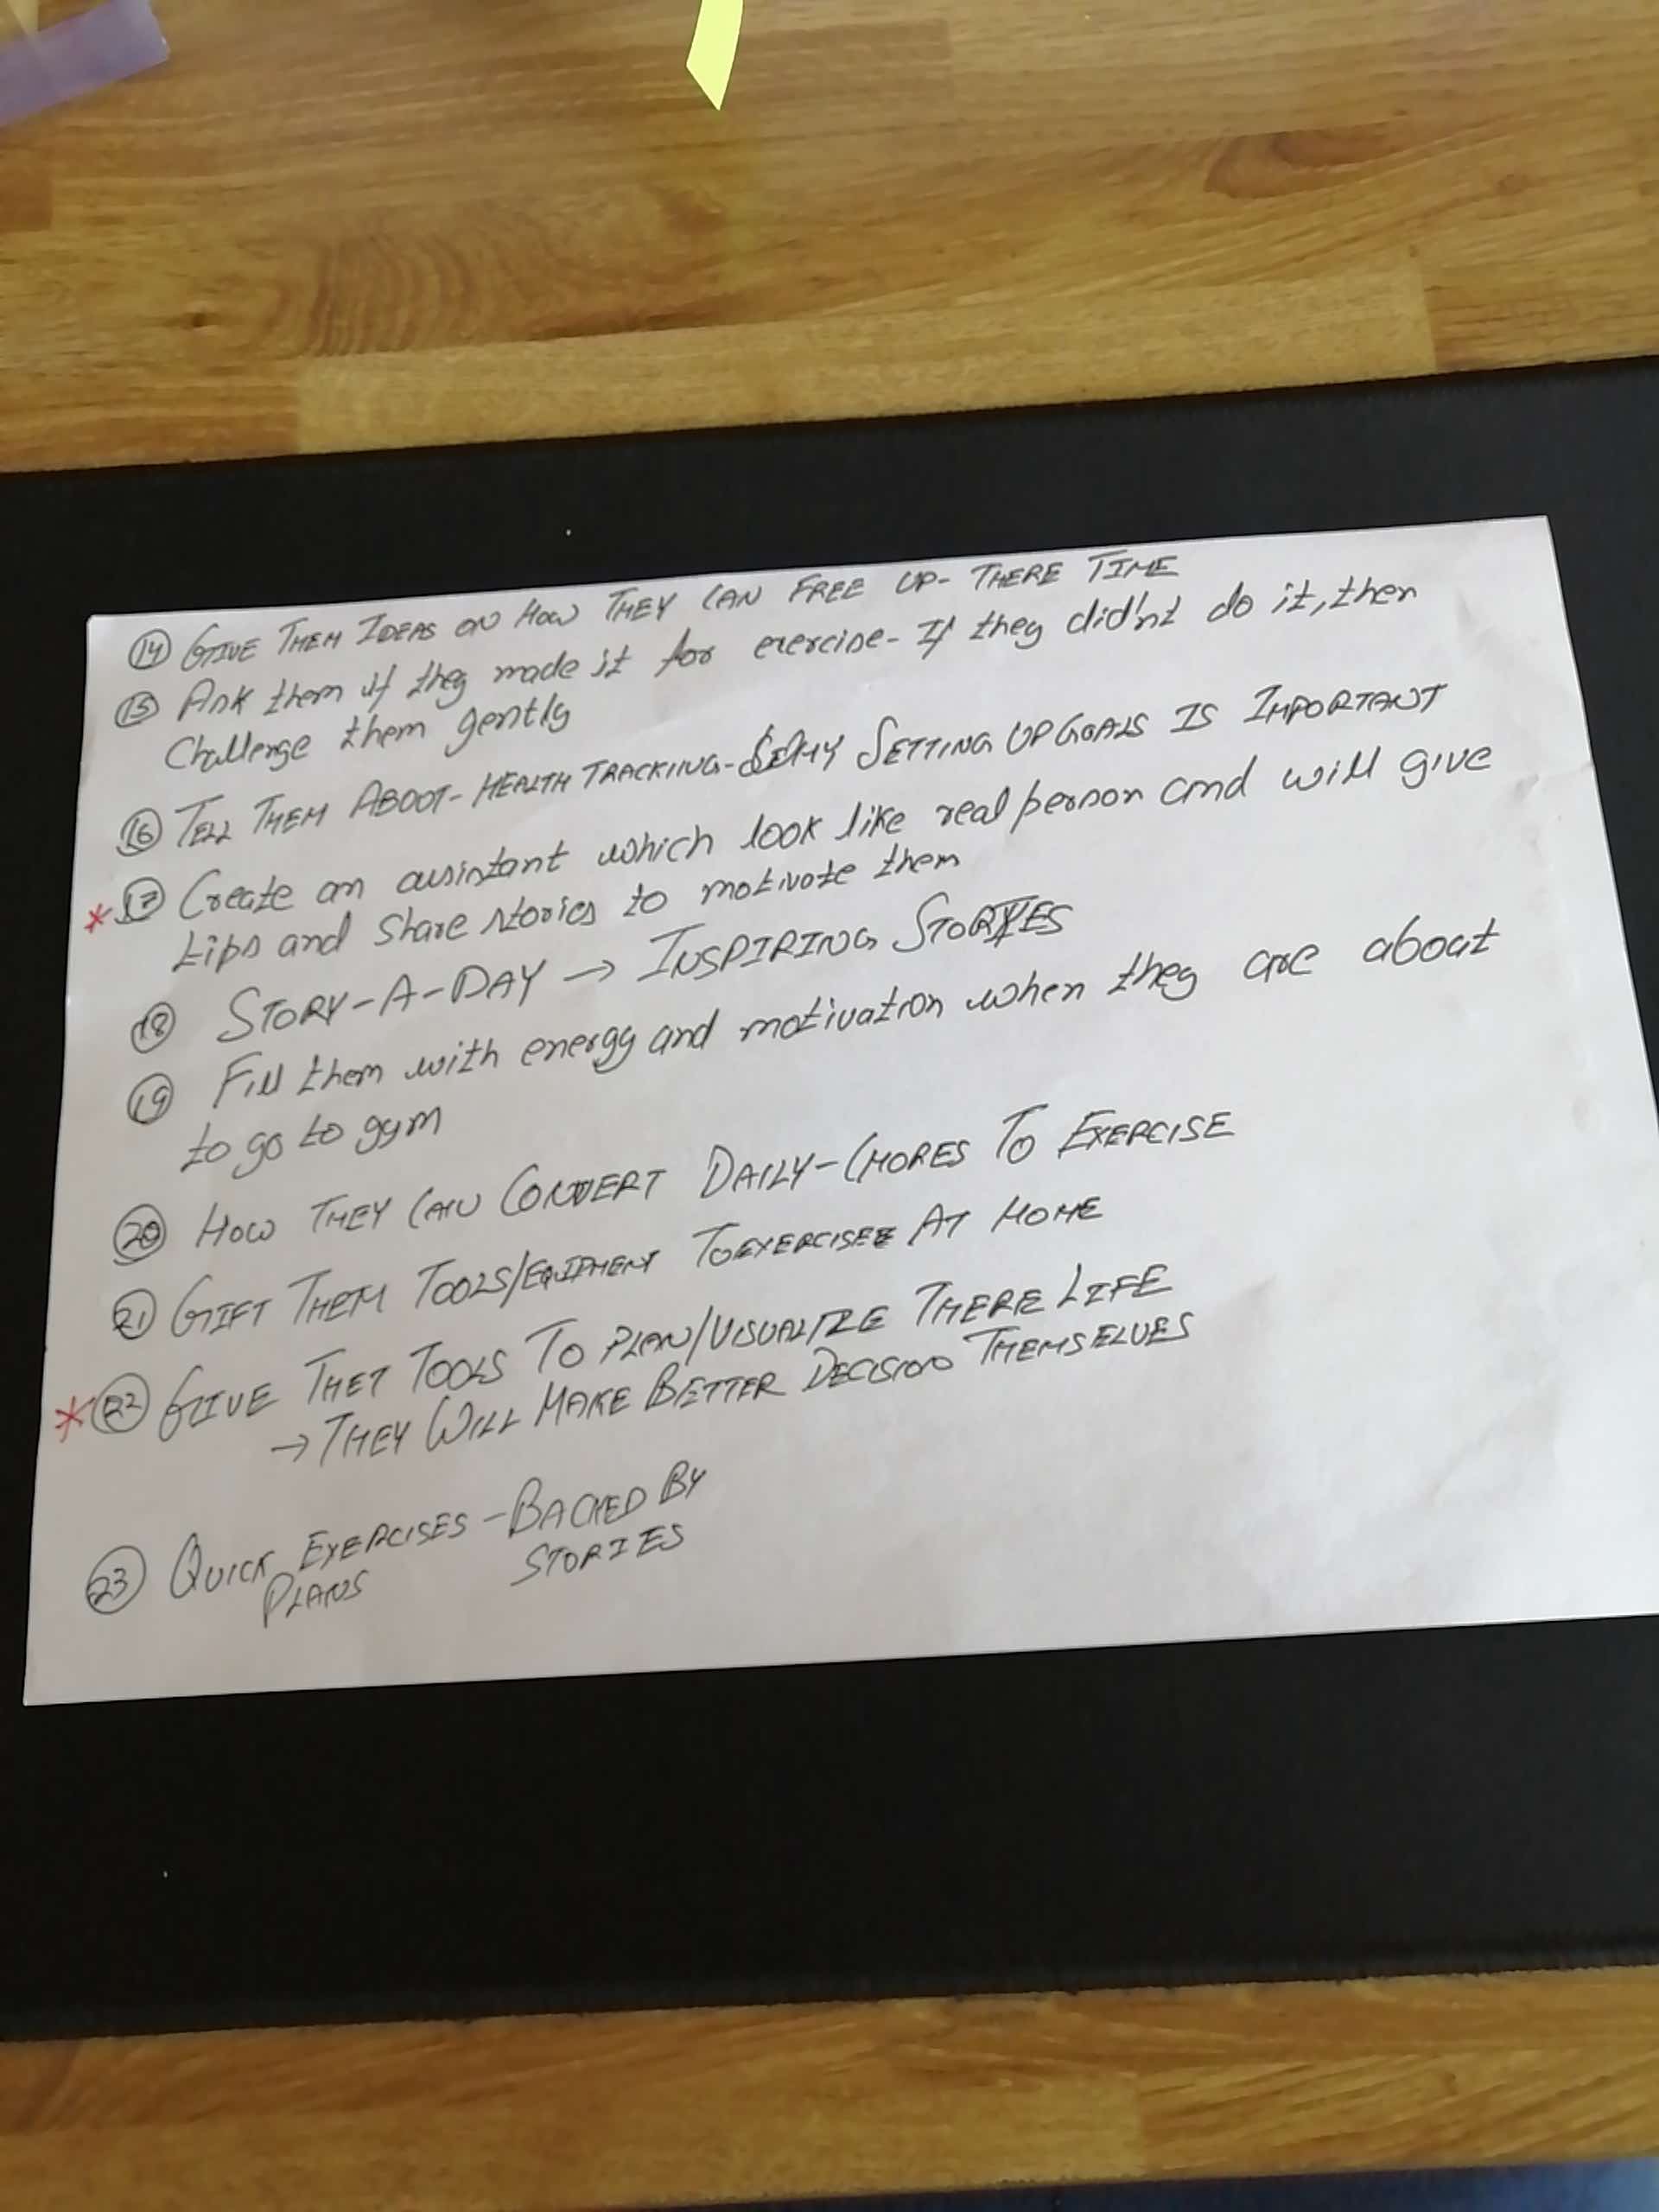 14 GIVE THEM IDEAS ON HOW THEY CAN FREE UP- THERE TIME
15 Ask them if they made it for exercise- If they did'nt do it, then
Challenge them gently
16 TELL THEM ABOUT- HEALTH TRACKING- WHY SETTING UP GOALS IS IMPORTANT
* 17 Create an assistant which look like real person and will give
tips and share stories to motivate them
18 STORY-A-DAY → INSPIRING STORIES
19 Fill them with energy and motivation when they are about
to go to gym
20 HOW THEY CAN CONVERT DAILY-CHORES TO EXERCISE
21 GIFT THEM TOOLS/EQUIPMENT TO EXERCISE AT HOME
* 22 GIVE THET TOOLS TO PLAN/VISUALIZE THERE LIFE
→ THEY WILL MAKE BETTER DECISION THEMSELVES
23 QUICK EXERCISES - BACKED BY
PLANS STORIES